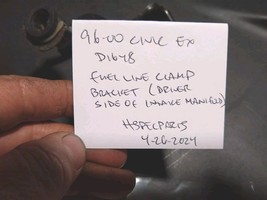 96-00 CIVIC EX
D16Y8
FUEL LINE CLAMP
BRACKET (DRIVER
SIDE OF INTAKE MANIFOLD)
HSPECPARTS
4-26-2024